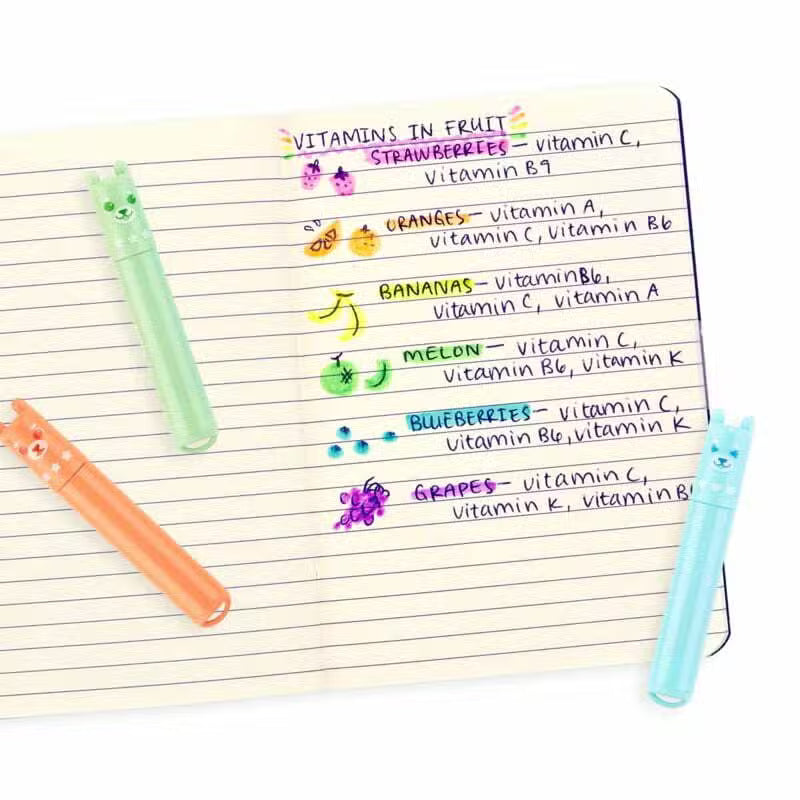 VITAMINS IN FRUIT
STRAWBERRIES - vitamin C,
vitamin B9
ORANGES - vitamin A,
vitamin C, vitamin B6
BANANAS - vitamin B6,
vitamin C, vitamin A
MELON - vitamin C,
vitamin B6, vitamin K
BLUEBERRIES - vitamin C,
vitamin B6, vitamin K
GRAPES - vitamin C,
vitamin K, vitamin